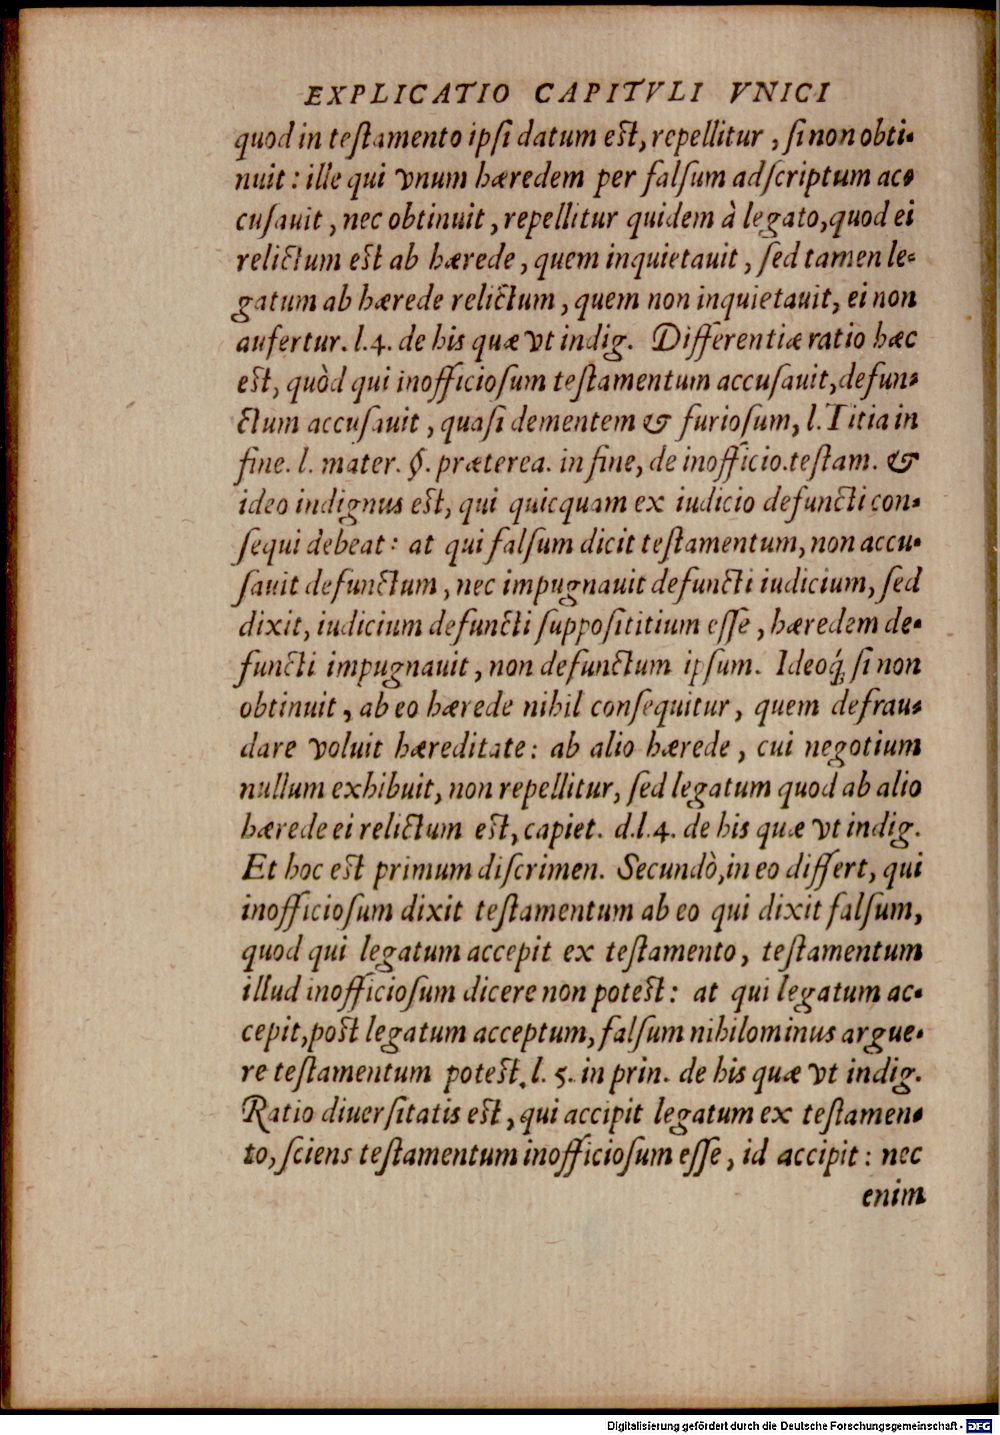 EXPLICATIO CAPITVLI VNICI
quod in teſtamento ipſi datum eſt, repellitur, ſi non obti-
nuit: ille qui vnum hæredem per falſum adſcriptum ac-
cuſauit, nec obtinuit, repellitur quidem à legato, quod ei
relictum eſt ab hærede, quem inquietauit, ſed tamen le-
gatum ab hærede relictum, quem non inquietauit, ei non
aufertur. l.4. de his quæ vt indig. Differentiæ ratio hæc
eſt, quòd qui inofficioſum teſtamentum accuſauit, defun-
ctum accuſauit, quaſi dementem & furioſum, l. Titia in
fine. l. mater. §. præterea. in fine, de inofficio. teſtam. &
ideo indignus eſt, qui quicquam ex iudicio defuncti con-
ſequi debeat: at qui falſum dicit teſtamentum, non accu-
ſauit defunctum, nec impugnauit defuncti iudicium, ſed
dixit, iudicium defuncti ſuppoſititium eſſe, hæredem de-
functi impugnauit, non defunctum ipſum. Ideoq́; ſi non
obtinuit, ab eo hærede nihil conſequitur, quem defrau-
dare voluit hæreditate: ab alio hærede, cui negotium
nullum exhibuit, non repellitur, ſed legatum quod ab alio
hærede ei relictum eſt, capiet. d.l.4. de his quæ vt indig.
Et hoc eſt primum diſcrimen. Secundò, in eo differt, qui
inofficioſum dixit teſtamentum ab eo qui dixit falſum,
quod qui legatum accepit ex teſtamento, teſtamentum
illud inofficioſum dicere non poteſt: at qui legatum ac-
cepit, poſt legatum acceptum, falſum nihilominus argue-
re teſtamentum poteſt. l. 5. in prin. de his quæ vt indig.
Ratio diuerſitatis eſt, qui accipit legatum ex teſtamen-
to, ſciens teſtamentum inofficioſum eſſe, id accipit: nec
enim
Digitalisierung gefördert durch die Deutsche Forschungsgemeinschaft - DFG